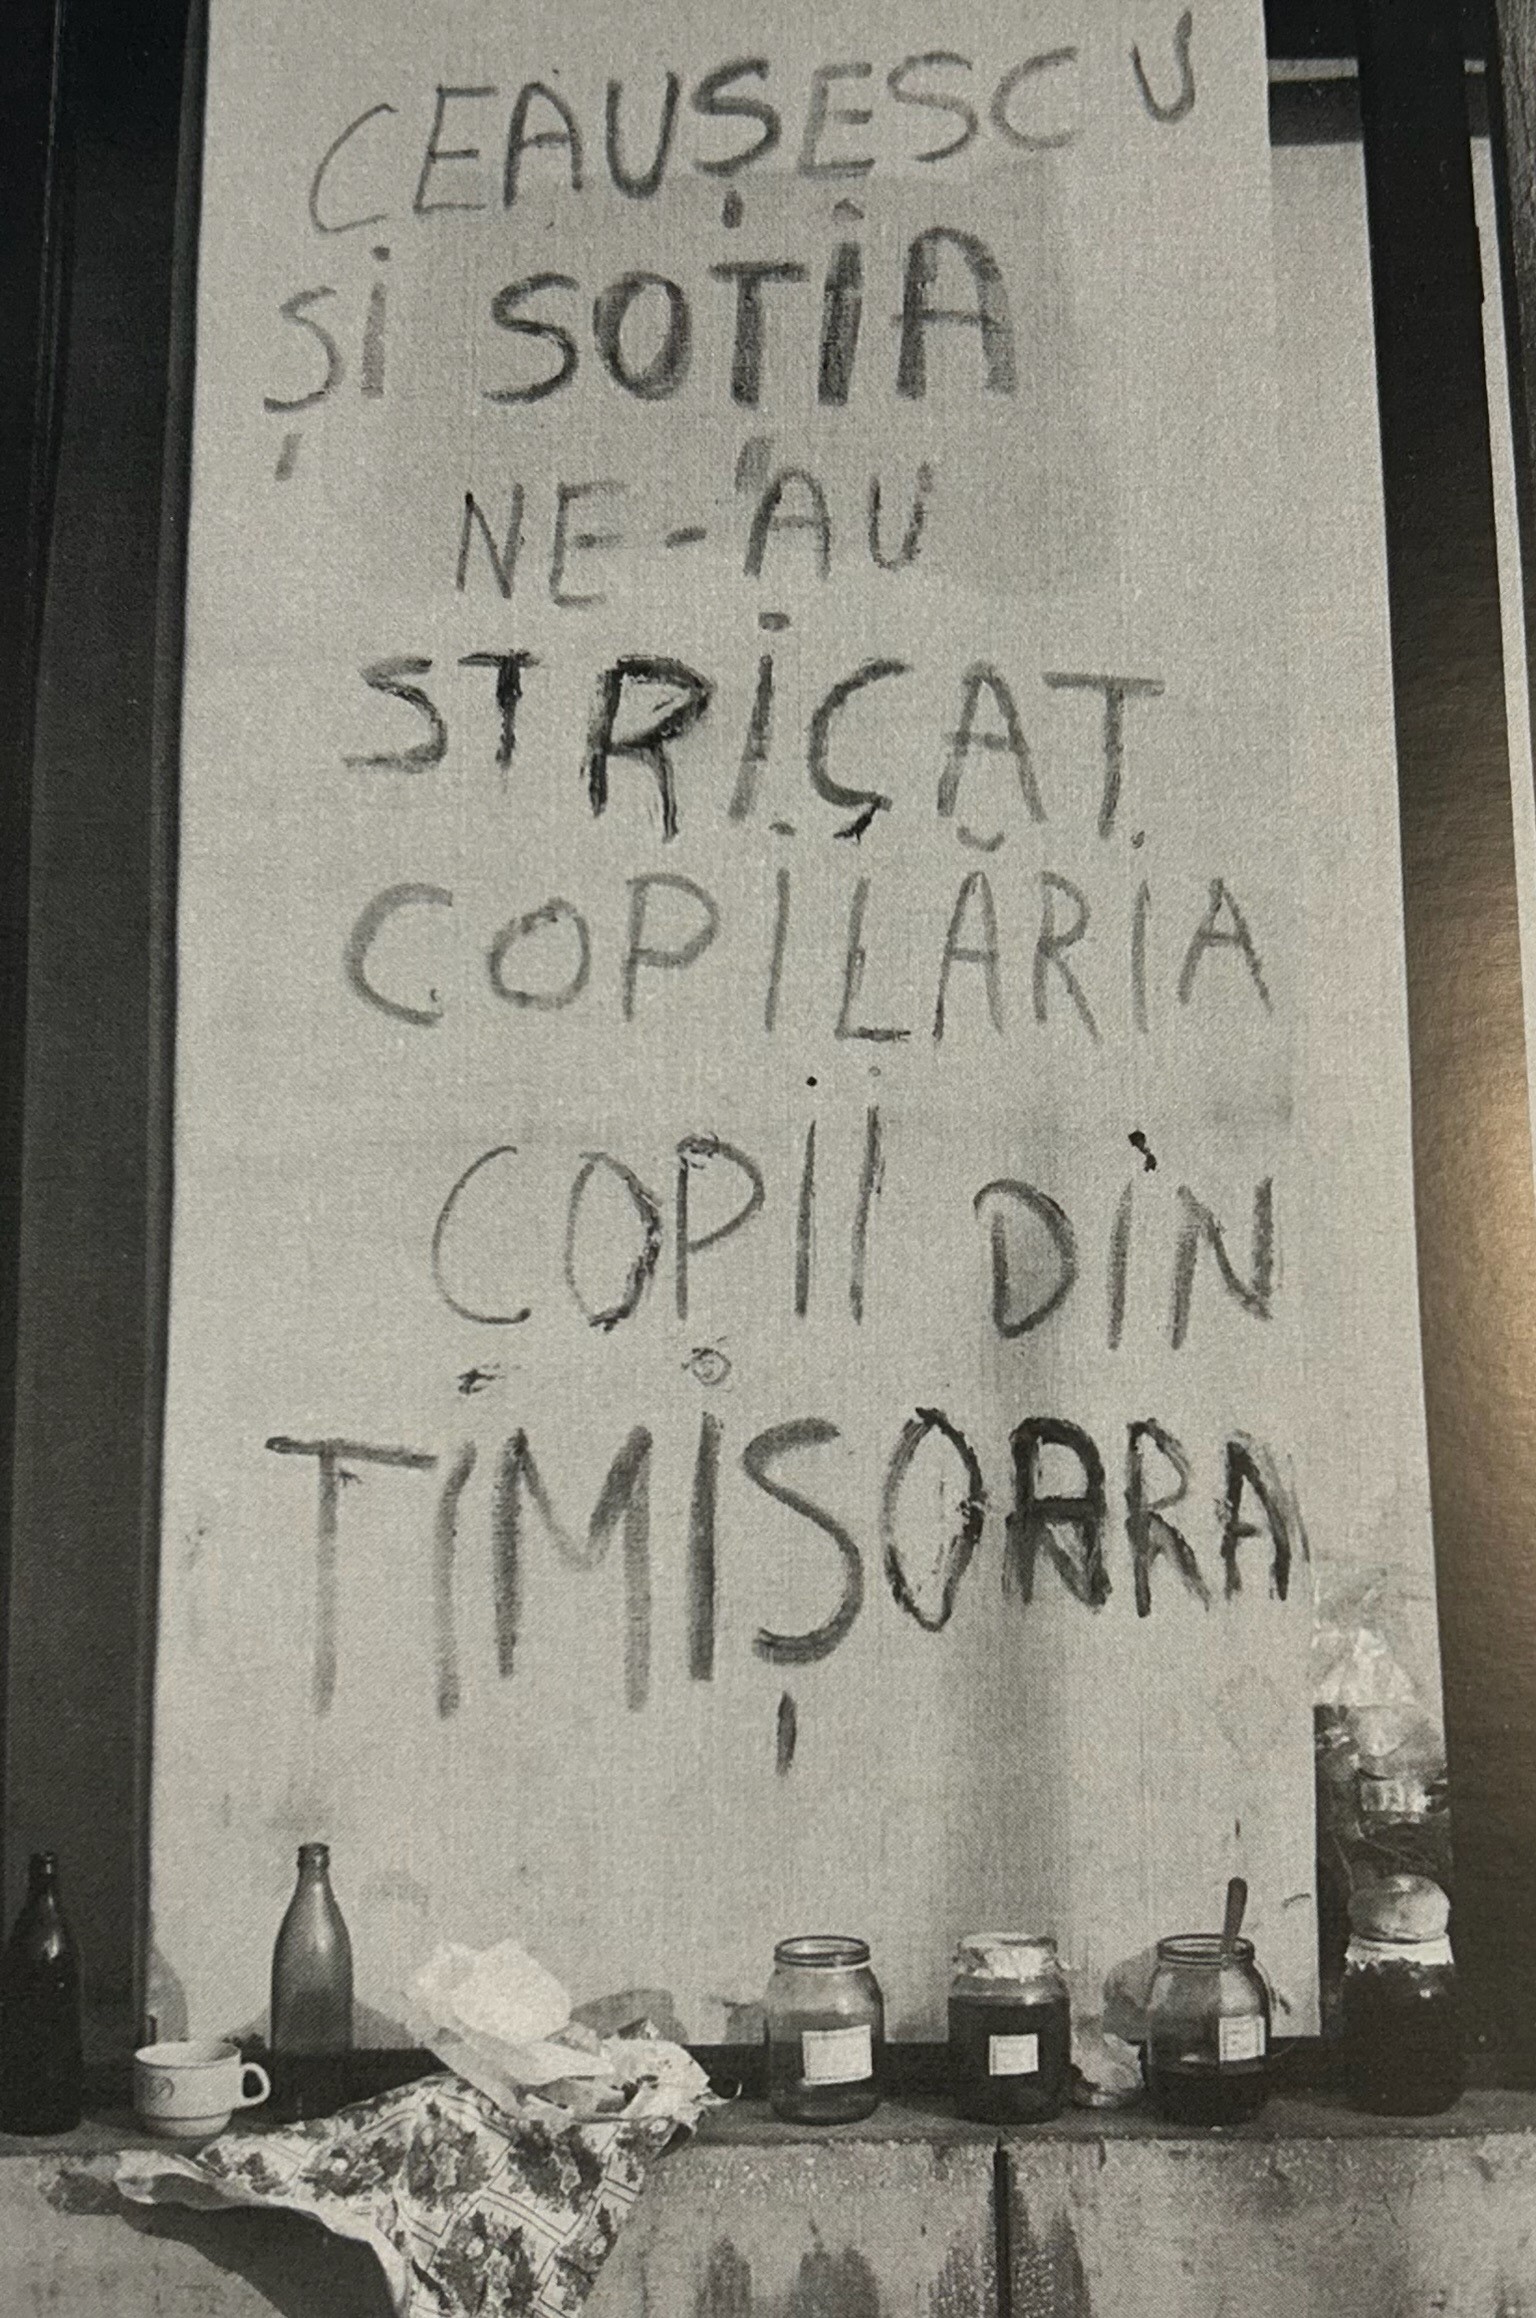 CEAUȘESCU
ȘI SOȚIA
NE-AU
STRICAT
COPILĂRIA
COPII DIN
TIMIȘOARA